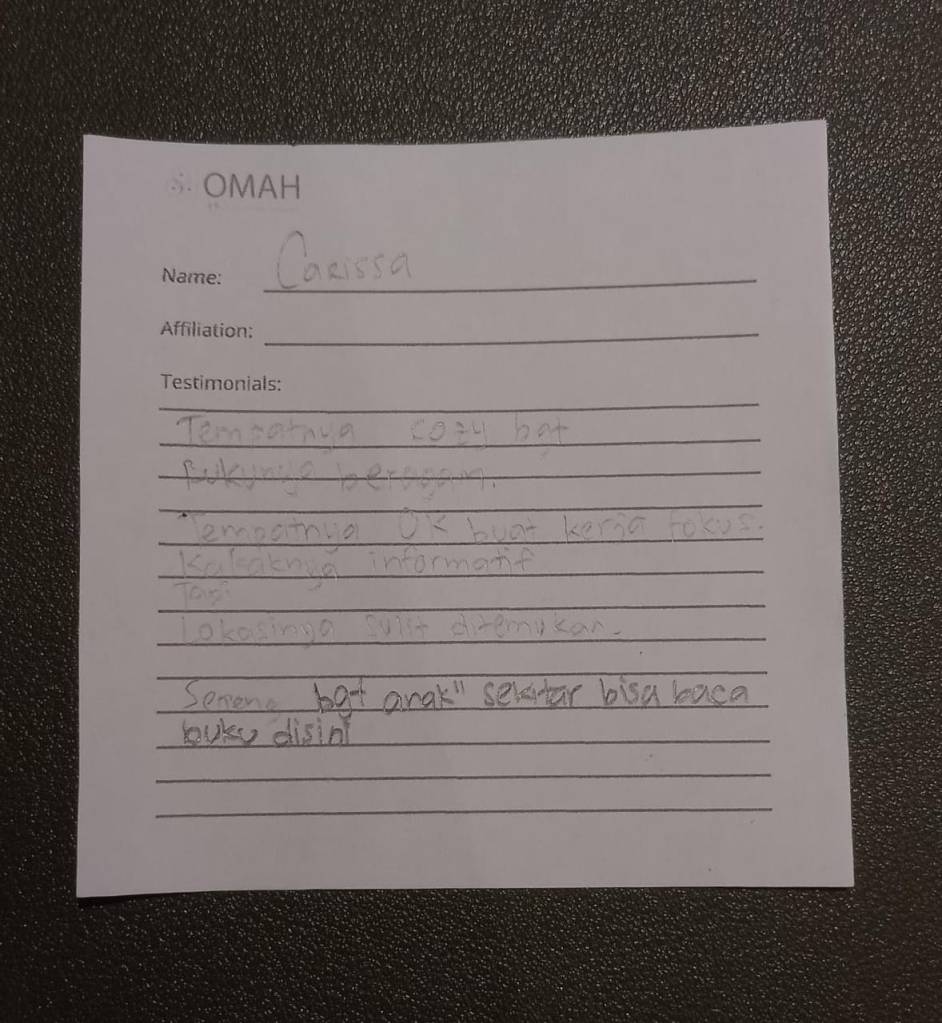 OMAH
Name: Carissa
Affiliation:
Testimonials:
Tempatnya cozy bgt
Bukunya beragam.
Tempatnya OK buat kerja fokus.
Kakaknya informatif
Tapi
Lokasinya sulit ditemukan.
Seneng bgt anak" sekitar bisa baca
buku disini